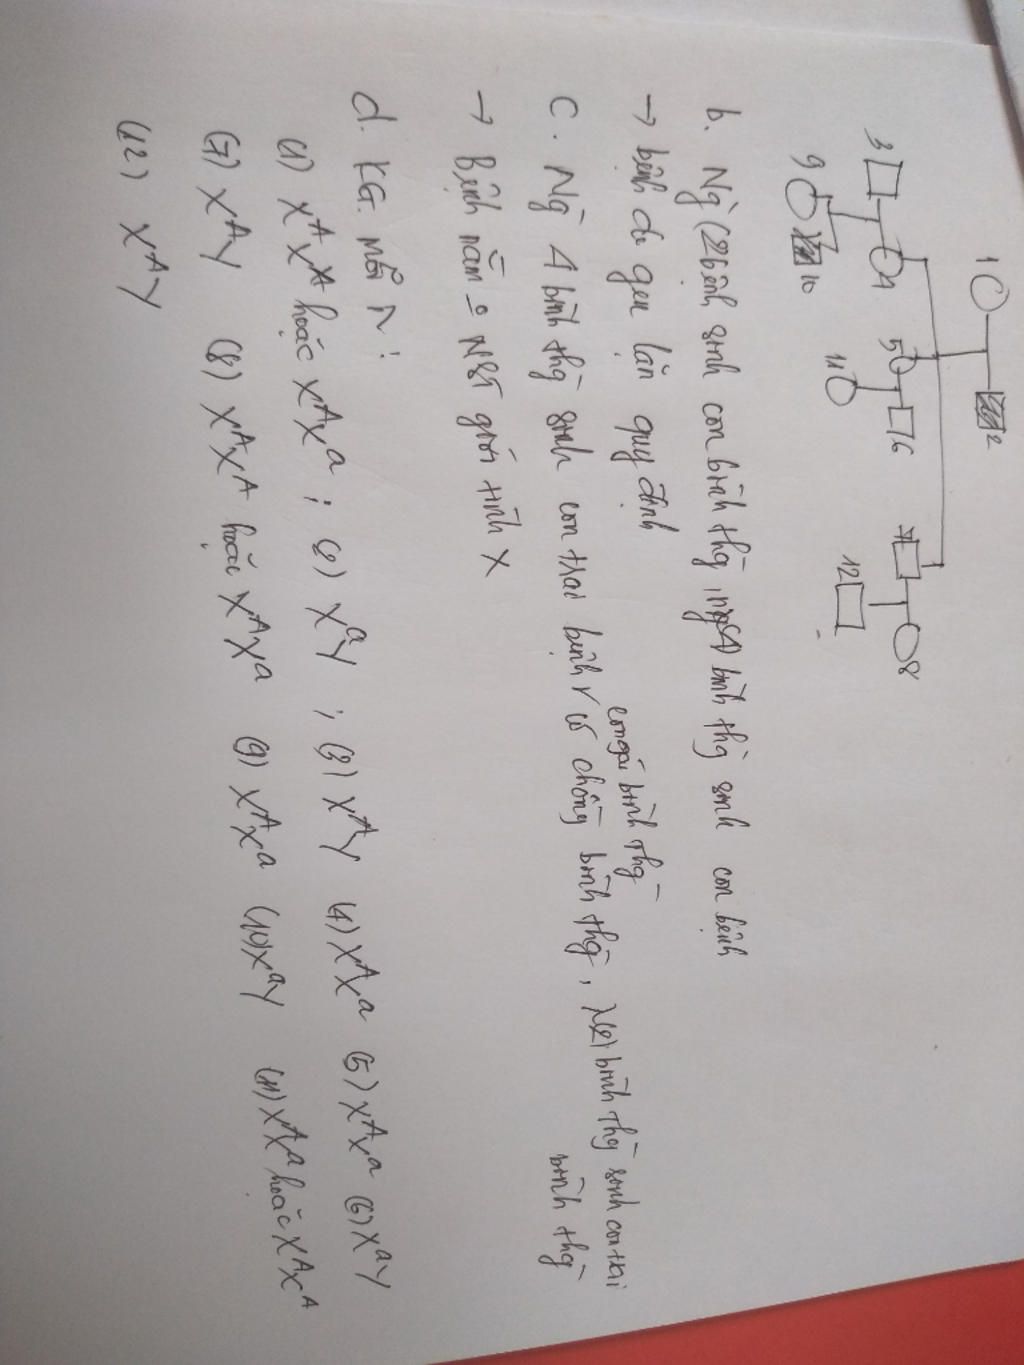 1 2
3 4 5 6 7 8
9 10 11 12
b. Ng (2 bệnh sinh con bình thg, ng 4 bình thg sinh con bệnh
→ bệnh do gen lặn quy định
con gái bình thg
c. Ng 4 bình thg sinh con trai bệnh v có chồng bình thg, (2) bình thg sinh con trai
bình thg
→ Bệnh nằm NST giới tính X
d. KG. mỗi n:
(1) XᴬXᴬ hoặc XᴬXᵃ; (2) XᵃY; (3) XᴬY (4) XᴬXᵃ (5) XᴬXᵃ (6) XᵃY
(7) XᴬY (8) XᴬXᴬ hoặc XᴬXᵃ (9) XᴬXᵃ (10) XᵃY (11) XᴬXᵃ hoặc XᴬXᴬ
(12) XᴬY